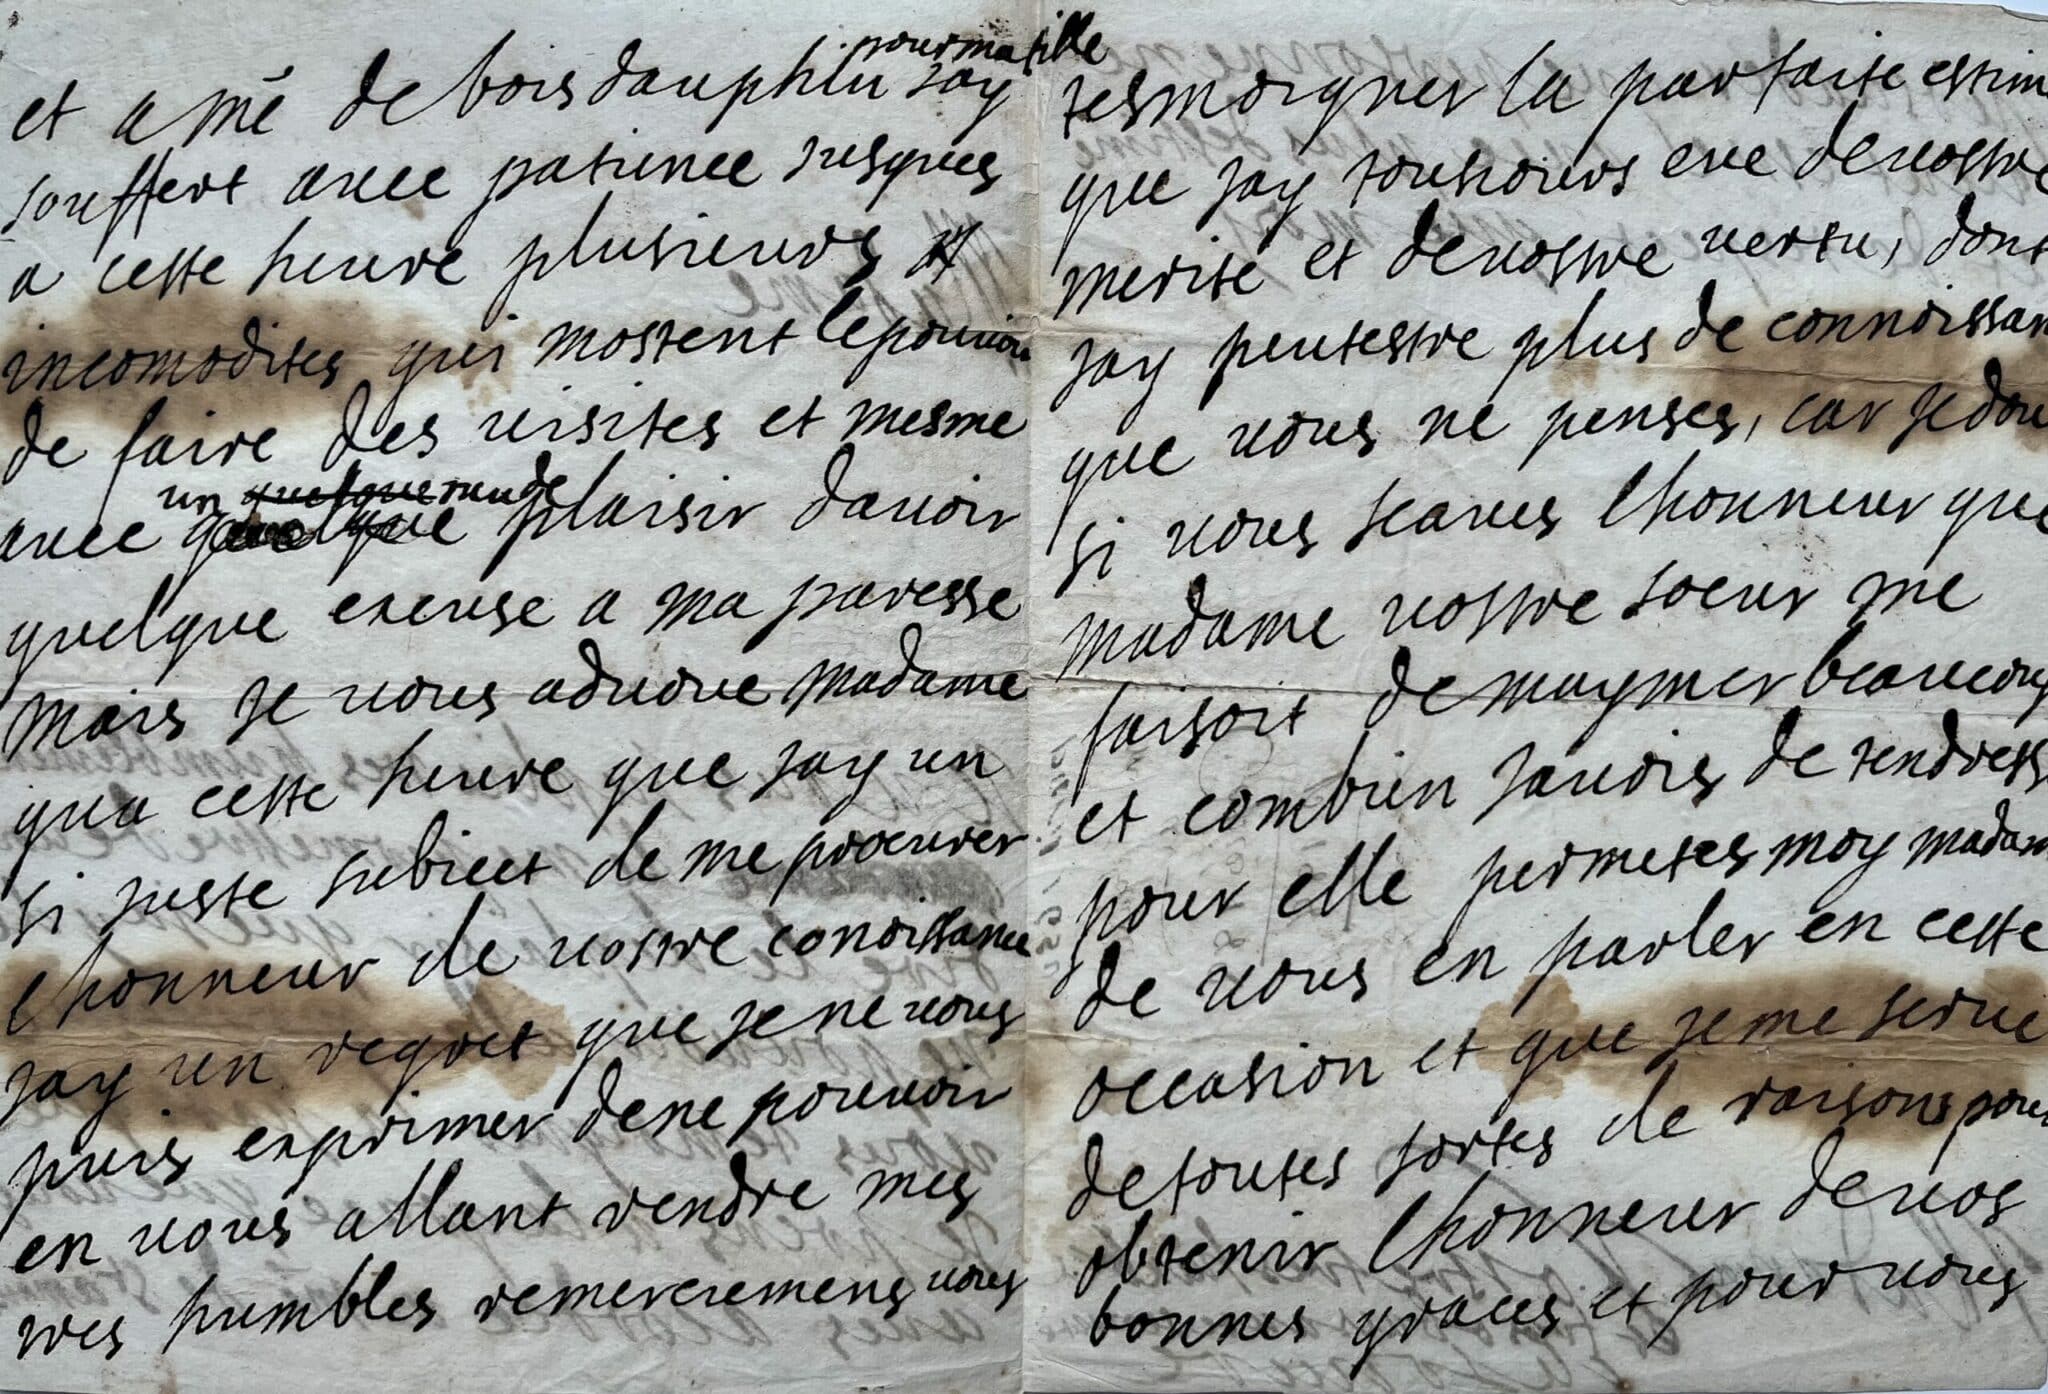 pour ma fille
et a mē de bois dauphin jay
souffert avec patience jusques
a cette heure plusieurs
incomodites qui mostent lepouvoir
de faire des visites et mesme
un
avec plaisir davoir
quelque excuse a ma paresse
mais je vous advoue madame
qua cette heure que jay un
si juste subiect de me procurer
lhonneur de vostre conoissance
jay un regret que je ne vous
puis exprimer dene pouvoir
en vous allant rendre mes
tres humbles remerciemens vous
tesmoigner la parfaite estim
que jay tousiours eue devostre
merite et devostre vertu, dont
jay peutestre plus de connoissan
que vous ne penses, car je dou
si vous scaves lhonneur que
madame vostre soeur me
faisoit de maymer beaucoup
et combien javois de tendress
pour elle permetes moy madam
de vous en parler en cette
occasion et que je me serve
detoutes sortes de raisons pour
obtenir lhonneur devos
bonnes graces et pour vous